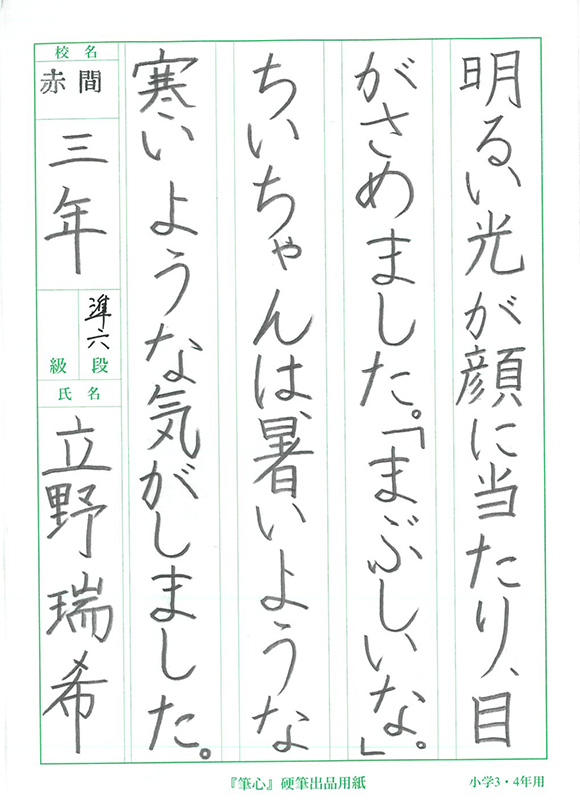 明るい光が顔に当たり、目
がさめました。「まぶしいな。」
ちいちゃんは、暑いような
寒いような気がしました。
校名
赤間
三年
準六
段
級
氏名
立野瑞希
『筆心』硬筆出品用紙
小学3・4年用